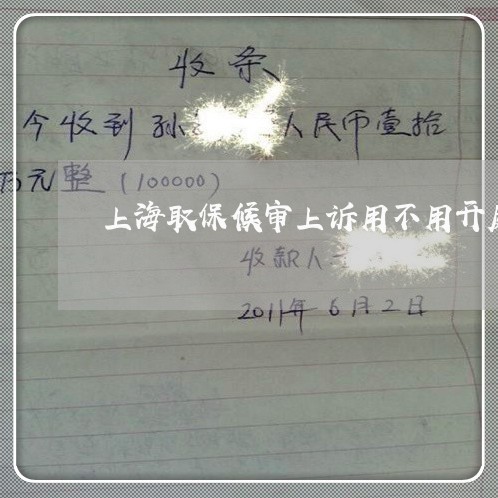 收条
今收到孙 人民币壹拾
万元整(100000)
上海取保候审上诉用不用开庭
收款人
2011年6月2日